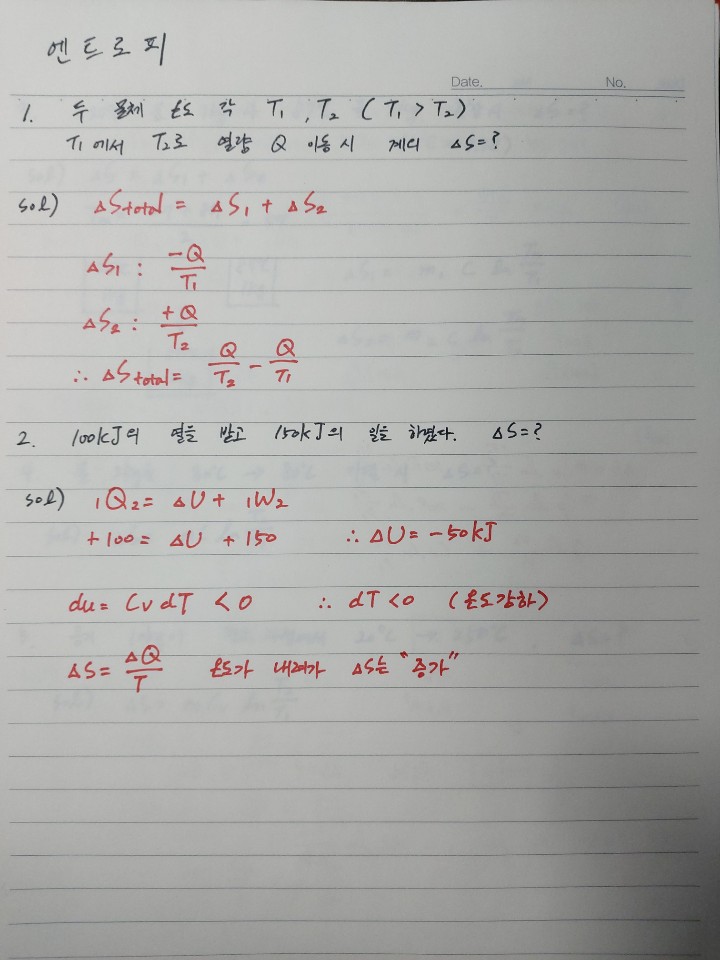 엔트로피
Date. No.
1. 두 물체 온도 각 T₁, T₂ ( T₁ > T₂ )
T₁에서 T₂로 열량 Q 이동 시 계의 ΔS=?
sol) ΔStotal = ΔS₁ + ΔS₂
ΔS₁ : -Q/T₁
ΔS₂ : +Q/T₂
∴ ΔStotal = Q/T₂ - Q/T₁
2. 100kJ의 열을 받고 150kJ의 일을 하였다. ΔS=?
sol) ₁Q₂ = ΔU + ₁W₂
+100 = ΔU + 150 ∴ ΔU = -50kJ
du = Cv dT < 0 ∴ dT < 0 (온도강하)
ΔS = ΔQ/T 온도가 내려가 ΔS는 "증가"